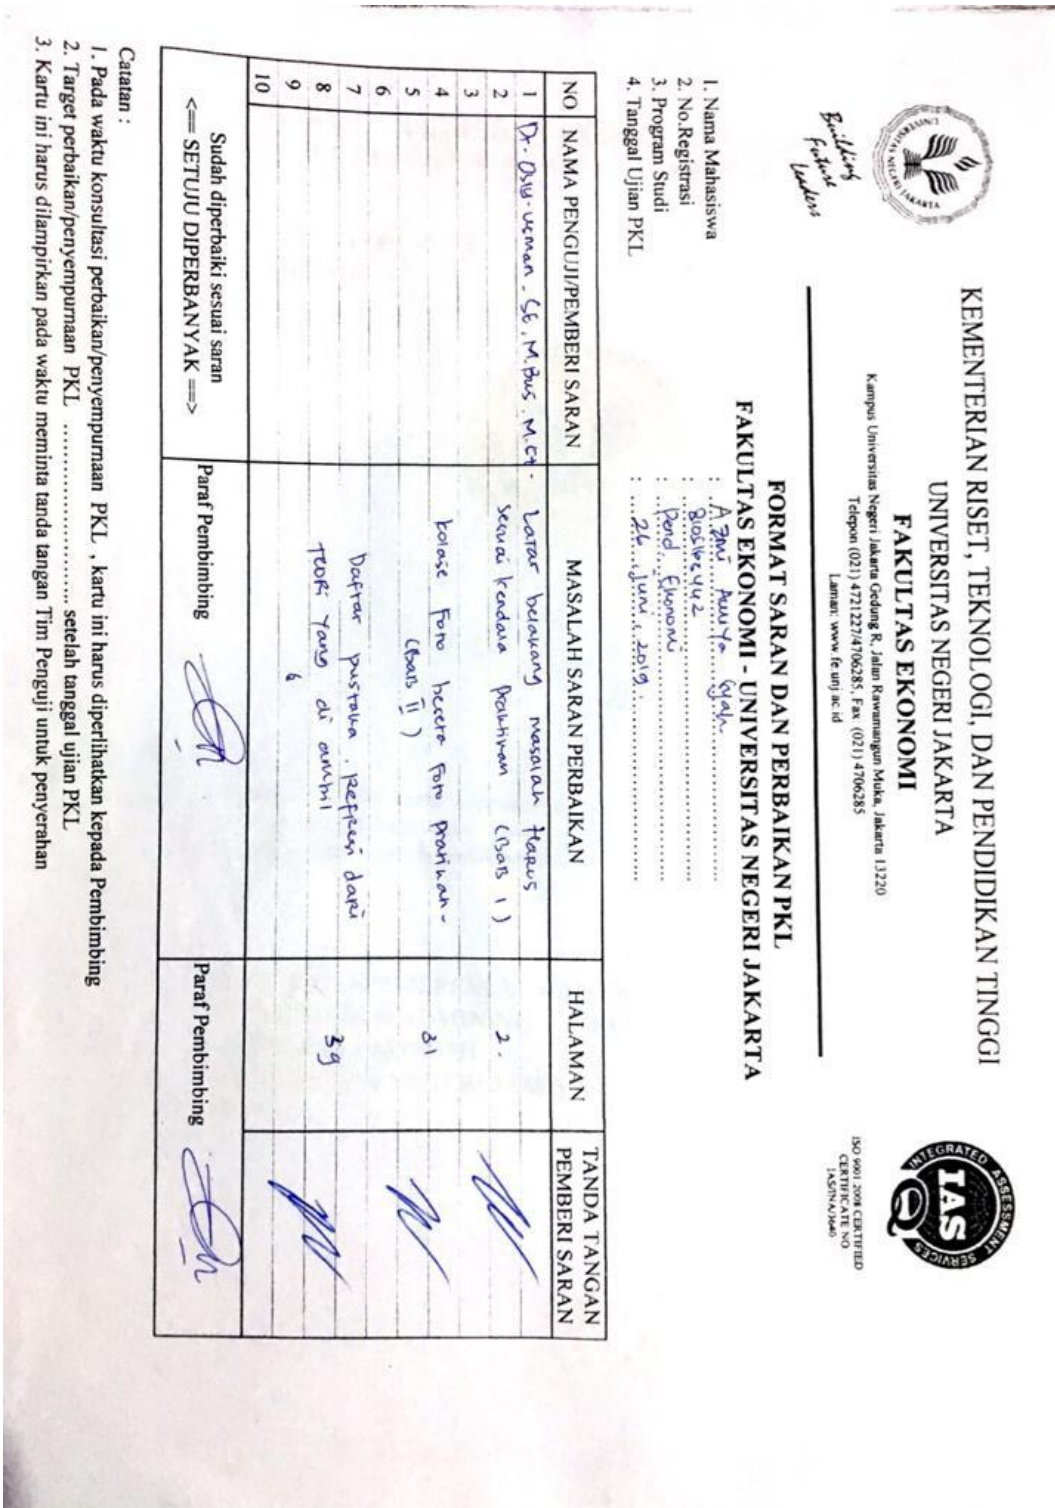 KEMENTERIAN RISET, TEKNOLOGI, DAN PENDIDIKAN TINGGI
UNIVERSITAS NEGERI JAKARTA
FAKULTAS EKONOMI
Kampus Universitas Negeri Jakarta Gedung R, Jalan Rawamangun Muka, Jakarta 13220
Telepon (021) 4721227/4706285, Fax: (021) 4706285
Laman: www.fe.unj.ac.id
UNIVERSITAS NEGERI JAKARTA
Building
Future
Leaders
INTEGRATED ASSESSMENT SERVICES
IAS
ISO 9001:2008 CERTIFIED
CERTIFICATE NO
IAS/INA/3640
FORMAT SARAN DAN PERBAIKAN PKL
FAKULTAS EKONOMI - UNIVERSITAS NEGERI JAKARTA
1. Nama Mahasiswa : Azmi
2. No.Registrasi :
3. Program Studi : Pend. Ekonomi
4. Tanggal Ujian PKL : 26 Juni 2019
NO NAMA PENGUJI/PEMBERI SARAN MASALAH SARAN PERBAIKAN HALAMAN TANDA TANGAN PEMBERI SARAN
1 Dr. SE. M.Bus. Latar belakang masalah Harus
2 sesuai kendala praktikan (BAB 1) 2.
3
4 kolase Foto beserta Foto praktikan- 31
5 (BAB II)
6
7 Daftar pustaka. Refresi dari
8 TEORI yang di ambil 39
9 6
10
Sudah diperbaiki sesuai saran
<=== SETUJU DIPERBANYAK ===>
Paraf Pembimbing
Paraf Pembimbing
Catatan :
1. Pada waktu konsultasi perbaikan/penyempurnaan PKL , kartu ini harus diperlihatkan kepada Pembimbing
2. Target perbaikan/penyempurnaan PKL .......................... setelah tanggal ujian PKL
3. Kartu ini harus dilampirkan pada waktu meminta tanda tangan Tim Penguji untuk penyerahan